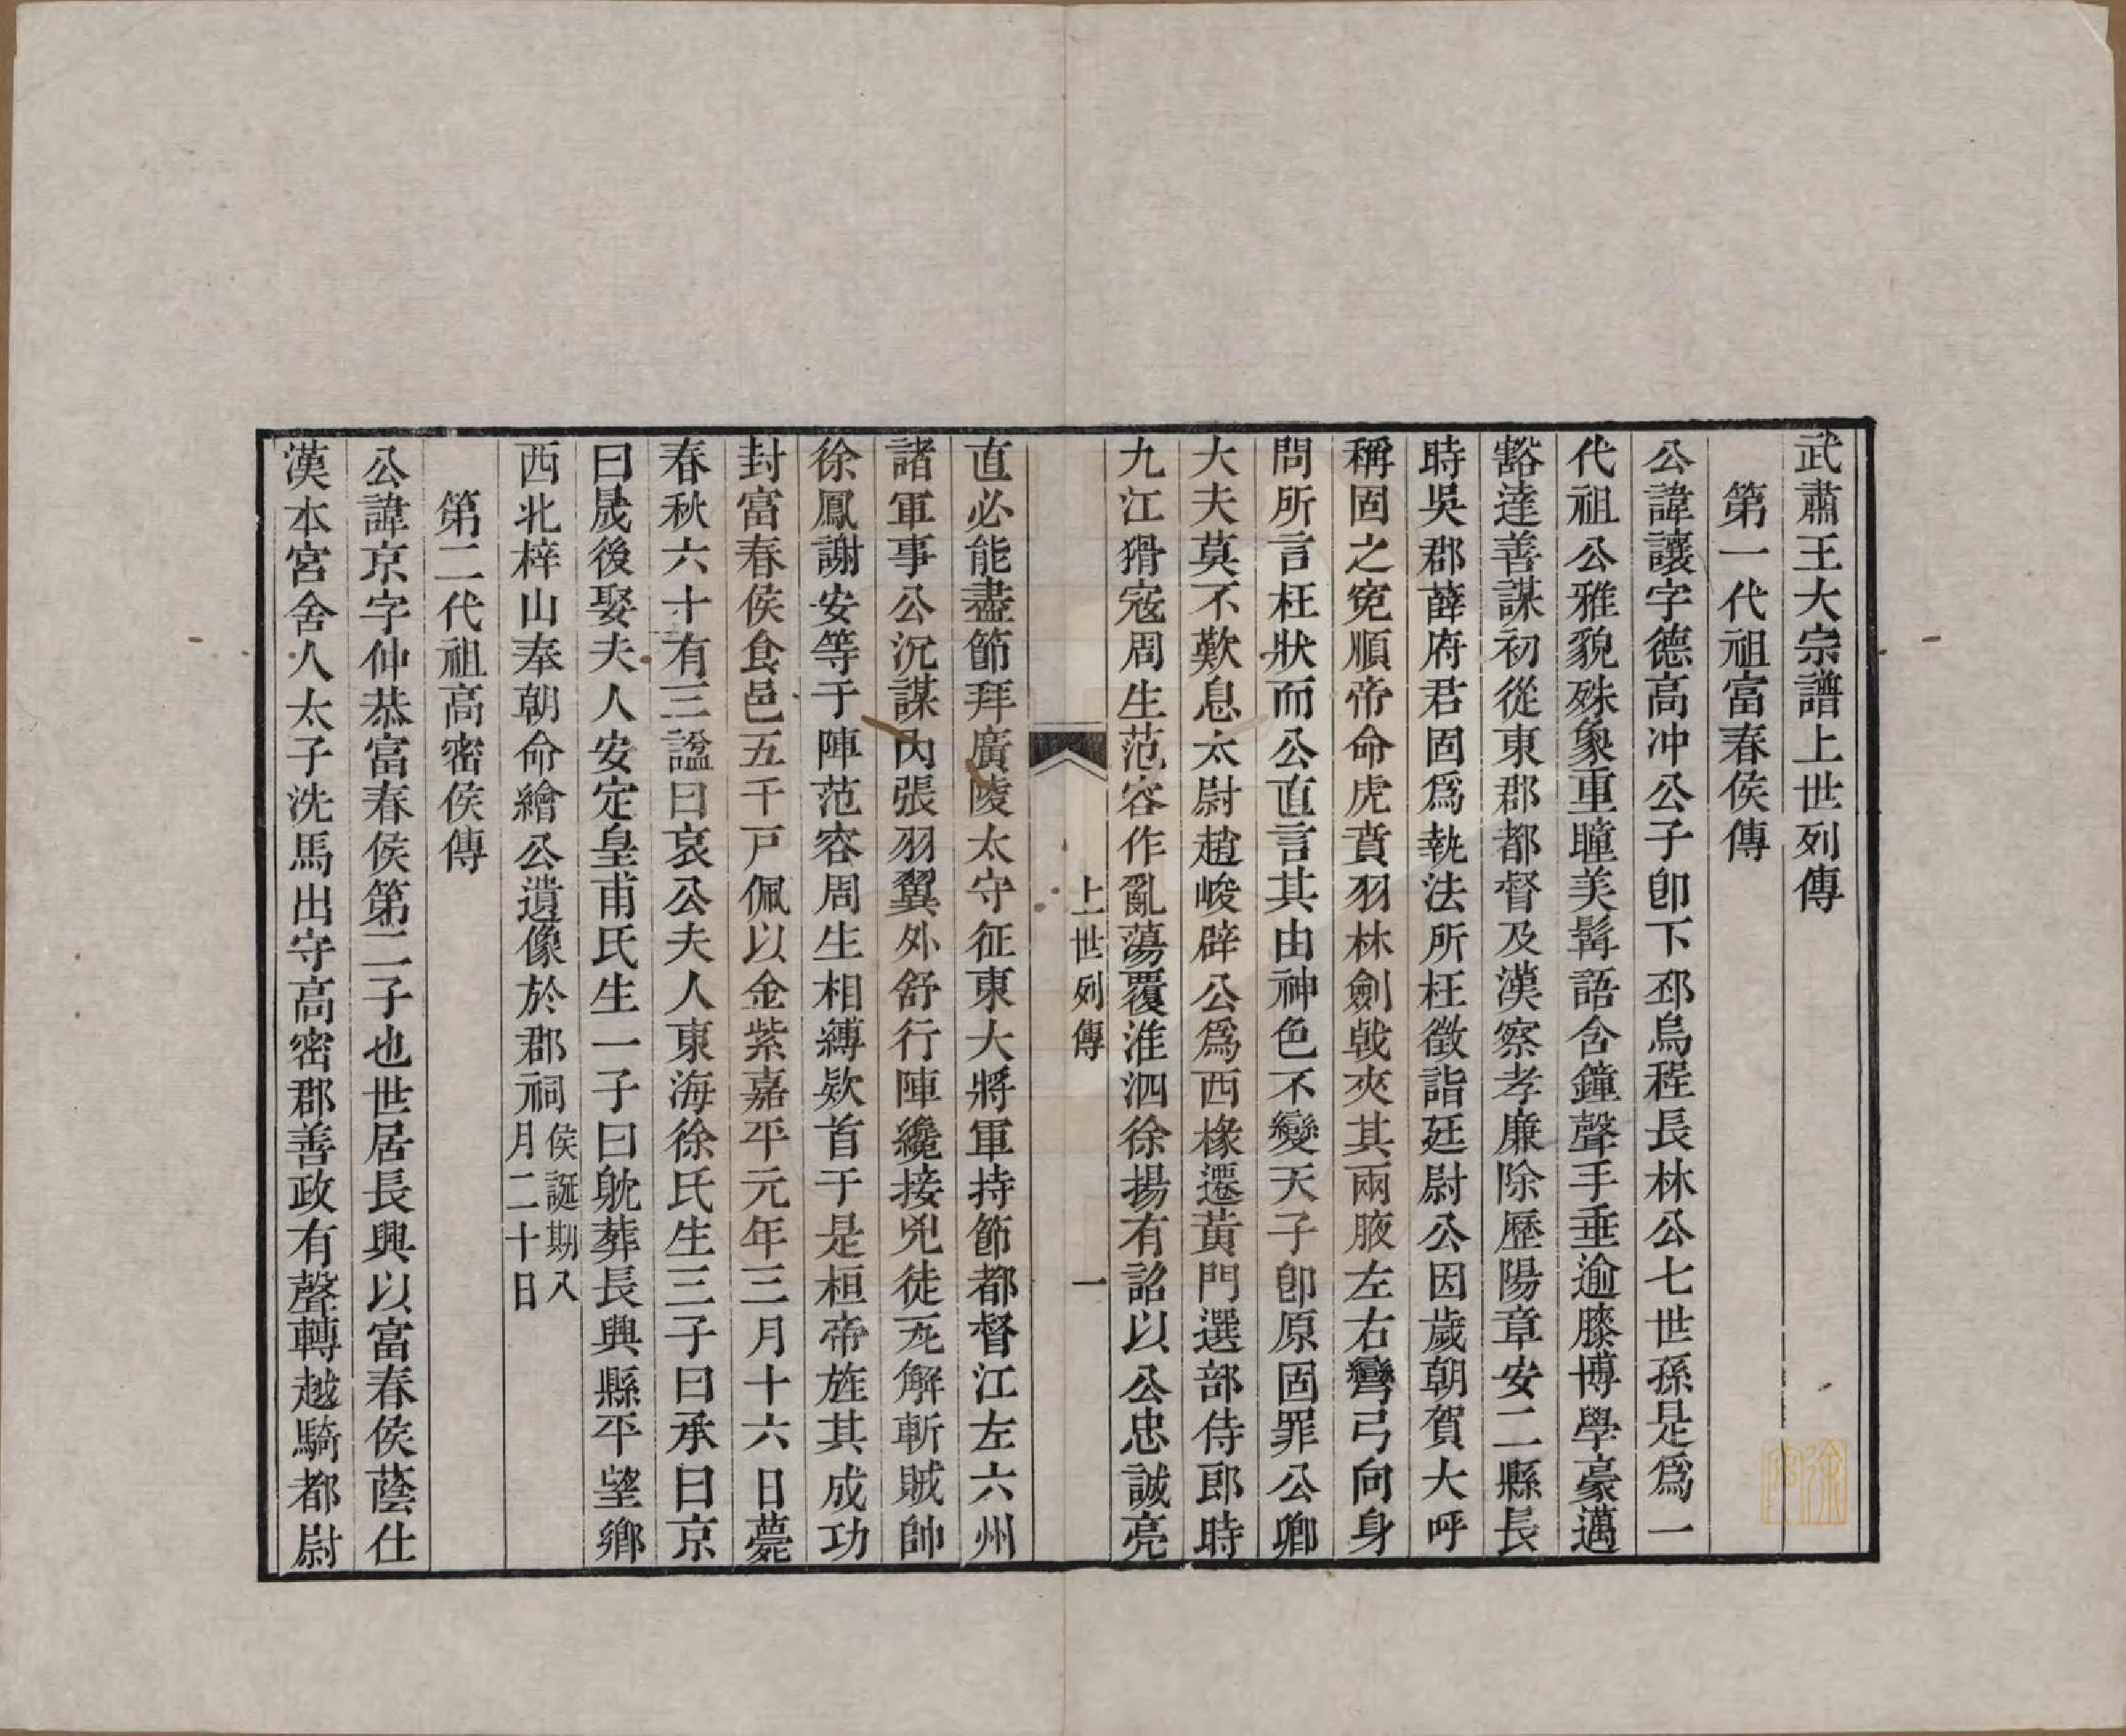 武肅王大宗譜上世列傳
第一代祖富春侯傳
公諱讓字德高冲公子卽下邳烏程長林公七世孫是爲一
代祖公雅貌殊象重瞳美髯語含鐘聲手垂逾膝博學豪邁
豁達善謀初從東郡都督及漢察孝廉除歷陽章安二縣長
時吳郡薛府君固爲執法所枉徵詣廷尉公因歲朝賀大呼
稱固之寃順帝命虎賁羽林劍戟夾其兩腋左右彎弓向身
問所言枉狀而公直言其由神色不變天子卽原固罪公卿
大夫莫不歎息太尉趙峻辟公爲西椽遷黃門選部侍郎時
九江猾寇周生范容作亂蕩覆淮泗徐揚有詔以公忠誠亮
上世列傳
一
直必能盡節拜廣陵太守征東大將軍持節都督江左六州
諸軍事公沉謀內張羽翼外舒行陣纔接兇徒㒫解斬賊帥
徐鳳謝安等于陣范容周生相縛欵首于是桓帝旌其成功
封富春侯食邑五千戸佩以金紫嘉平元年三月十六日薨
春秋六十有三諡曰哀公夫人東海徐氏生三子曰承曰京
曰晟後娶夫人安定皇甫氏生一子曰躭葬長興縣平望鄉
西北梓山奉朝命繪公遺像於郡祠侯誕期八月二十日
第二代祖高密侯傳
公諱京字仲恭富春侯第二子也世居長興以富春侯蔭仕
漢本宮舍人太子洗馬出守高密郡善政有聲轉越騎都尉